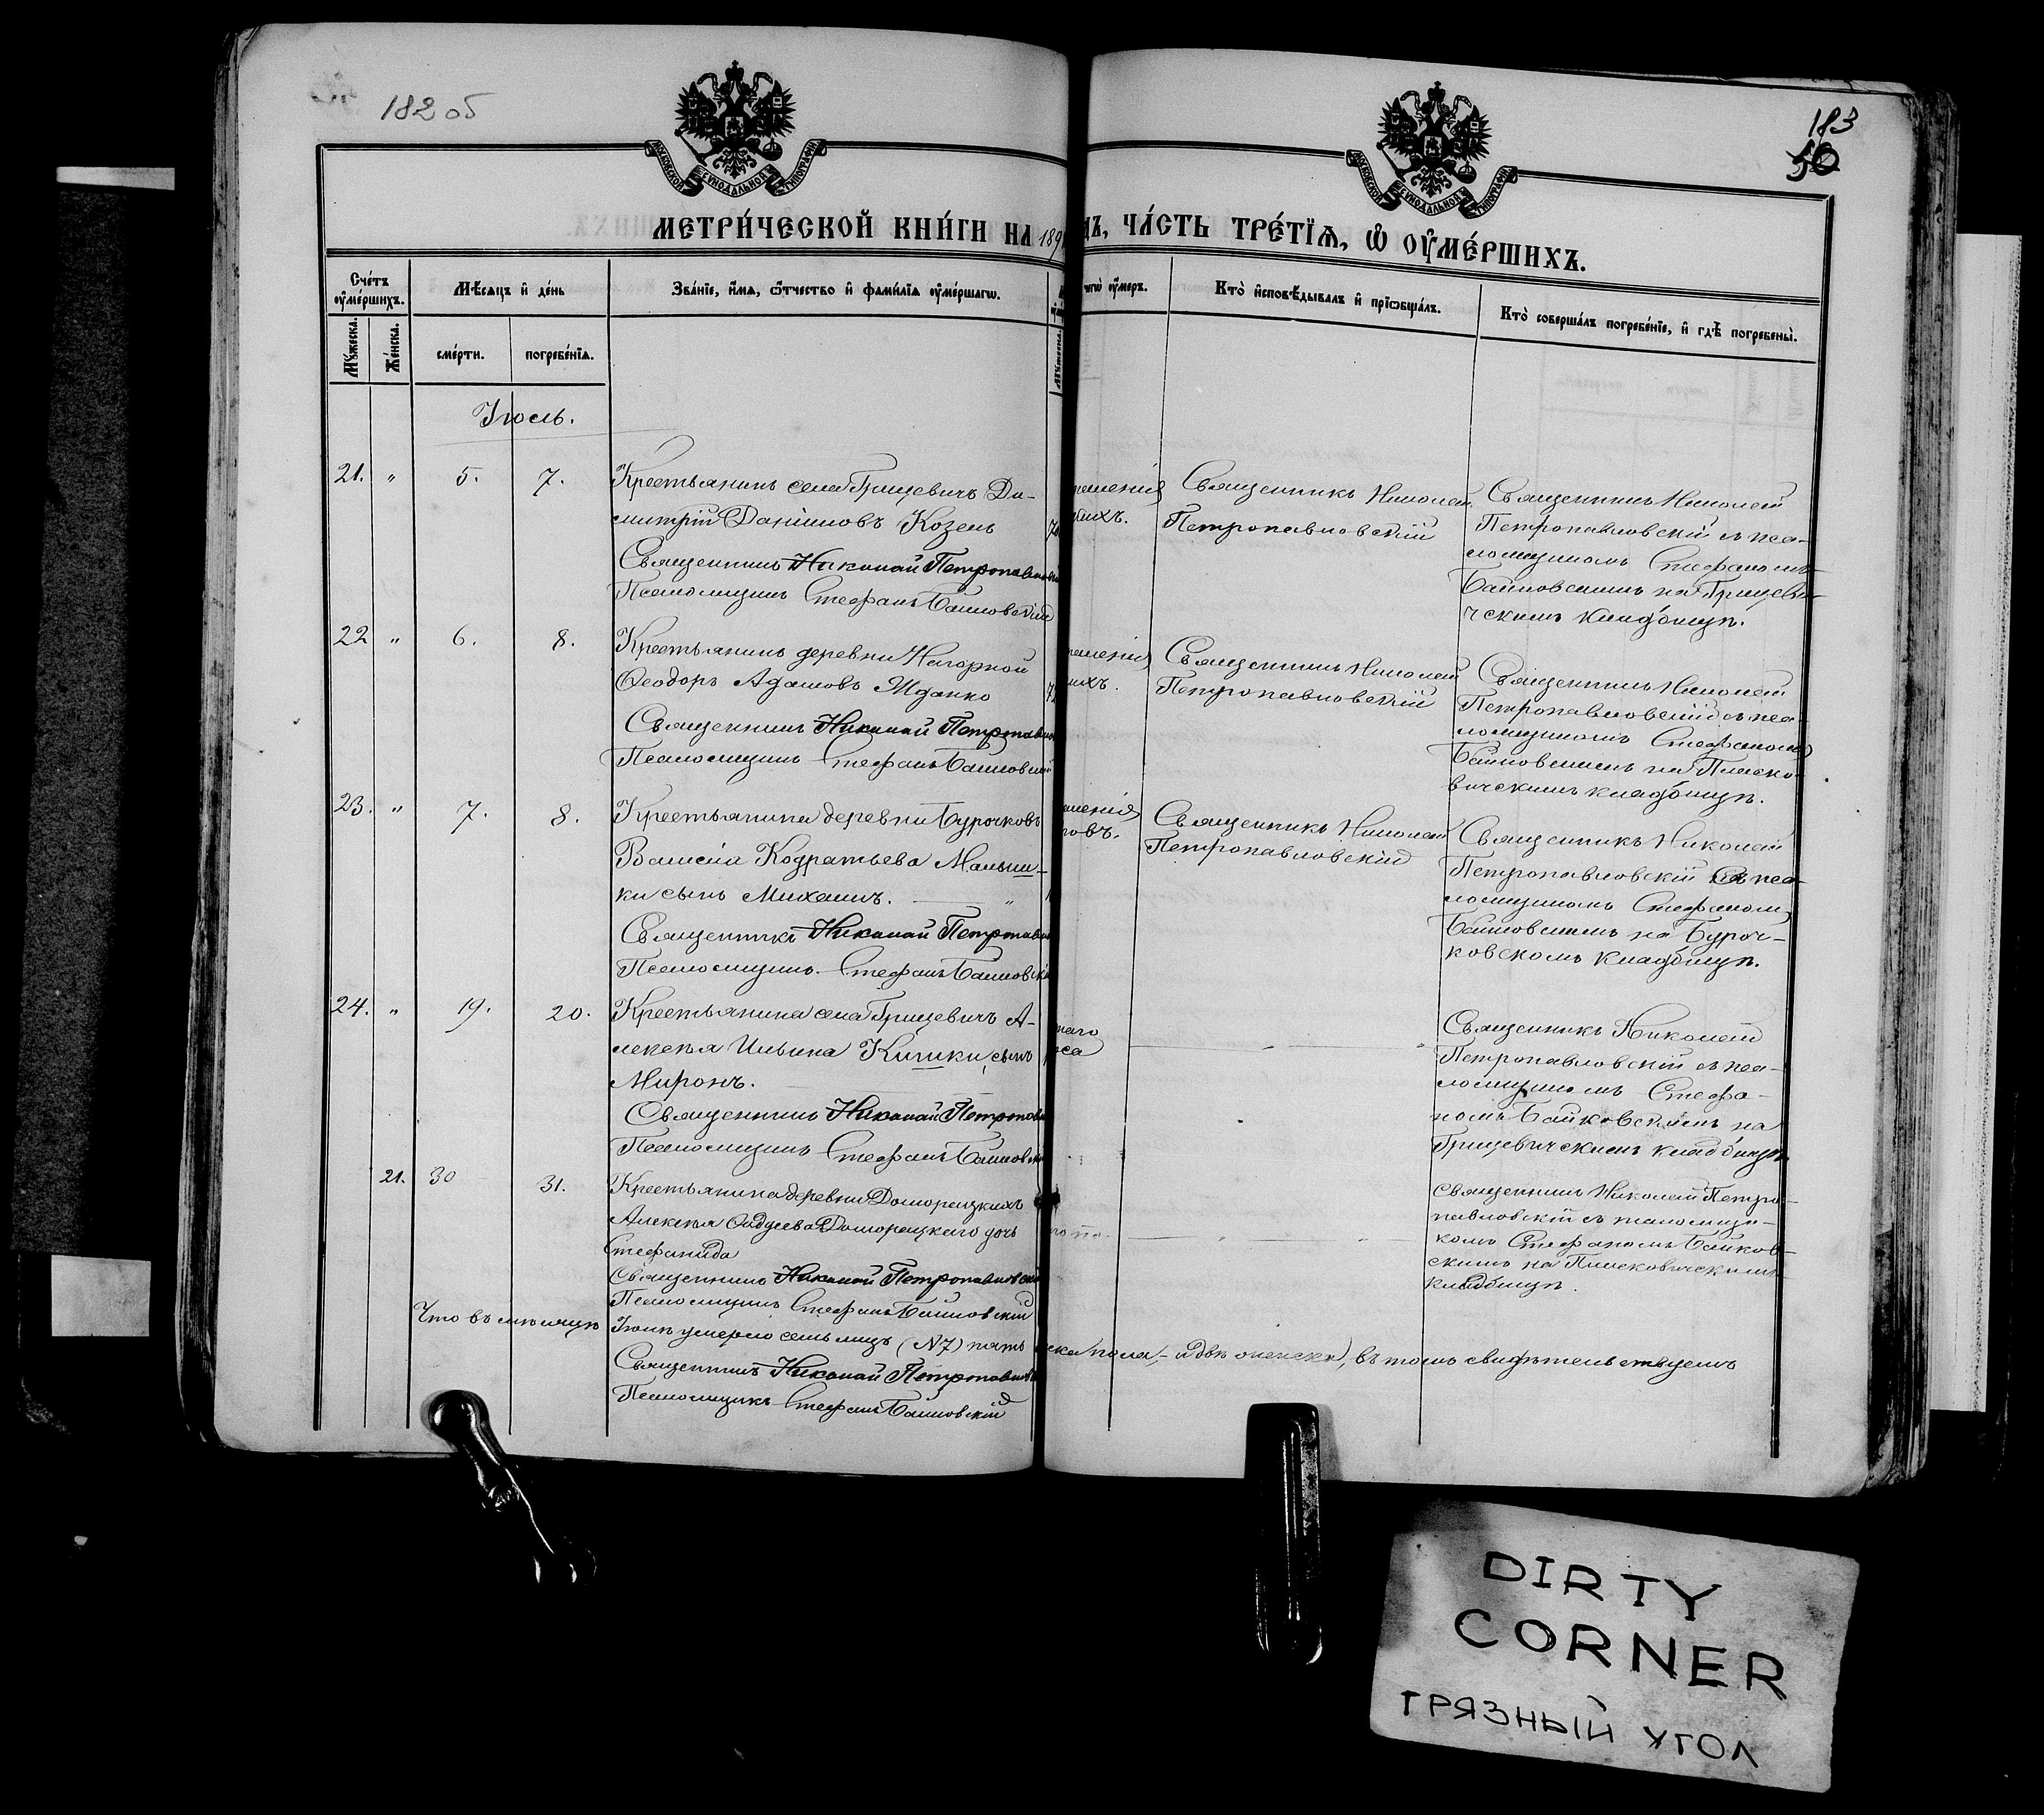 182 об
183
50
МОСКОВСКОЙ СѴНОДАЛЬНОЙ ТИПОГРАФІИ
МОСКОВСКОЙ СѴНОДАЛЬНОЙ ТИПОГРАФІИ
МЕТРИ́ЧЕСКОЙ КНИ́ГИ НА 189
ДЪ, ЧА́СТЬ ТРЕ́ТЇѦ, Ѡ҆ ОУ҆МЕ́РШИХЪ.
Сче́тъ оу҆ме́ршихъ.
Мѣ́сяцъ и҆ де́нь
Зва́нїе, и҆́мѧ, ѻ҆́тчество и҆ фами́лїѧ оу҆ме́ршагѡ.
чегѡ̀ оу҆́меръ.
Кто̀ и҆сповѣ́дывалъ и҆ прїѡбща́лъ.
Кто̀ соверша́лъ погребе́нїе, и҆ гдѣ̀ погребены̀.
Мꙋ́жеска.
Же́нска.
сме́рти.
погребе́нїѧ.
Іюль.
21. " 5. 7.
Крестьянинъ села Грицевичъ Ди-
митрій Даніиловъ Козень
Священникъ Николай Петропавловск
Псаломщикъ Стефанъ Байковскій
Священникъ Николай
Петропавловскій
Священникъ Николай
Петропавловскій съ пса-
ломщикомъ Стефаномъ
Байковскимъ на Грицеви-
ческимъ кладбищѣ.
22 " 6. 8.
Крестьянинъ деревни Нагорной
Ѳеодоръ Адамовъ Жданко
72
Священникъ Николай Петропавло
Псаломщикъ Стефанъ Байковскій
Священникъ Николай
Петропавловскій
Священникъ Николай
Петропавловскій съ пса-
ломщикомъ Стефаномъ
Байковскимъ на Плиско-
вическимъ кладбищѣ.
23. " 7. 8.
Крестьянина деревни Бурочковъ
Василія Кодратьева Малыш-
ки сынъ Михаилъ. "
Священникъ Николай Петропавло
Псаломщикъ Стефанъ Байковскі
Священникъ Николай
Петропавловскій
Священникъ Николай
Петропавловскій съ пса-
ломщикомъ Стефаномъ
Байковскимъ на Буроч-
ковскомъ кладбищѣ.
24. " 19. 20.
Крестьянина села Грицевичъ А-
лексѣя Ильина Кишки, сынъ
Миронъ.
Священникъ Николай Петропавло
Псаломщикъ Стефанъ Байковск
Священникъ Николай
Петропавловскій съ пса-
ломщикомъ Стефа-
номъ Байковскимъ на
Грицевическимъ кладбищѣ
21. 30 31.
Крестьянина деревни Доморацкихъ
Алексѣя Авдеева Доморацкаго дочь
Стефанида
Священникъ Николай Петропавловскі
Псаломщикъ Стефанъ Байковскій
Священникъ Николай Петро-
павловскій съ псаломщи-
комъ Стефаномъ Байков-
скимъ на Плисковическимъ
кладбищѣ.
Что въ мѣсяцѣ Іюлѣ умерло семь лицъ (N 7) пять ска пола, и двѣ женска), въ томъ свидѣтельствуемъ
Священникъ Николай Петропавловск
Псаломщикъ Стефанъ Байковскій
DIRTY
CORNER
ГРЯЗНЫЙ УГОЛ